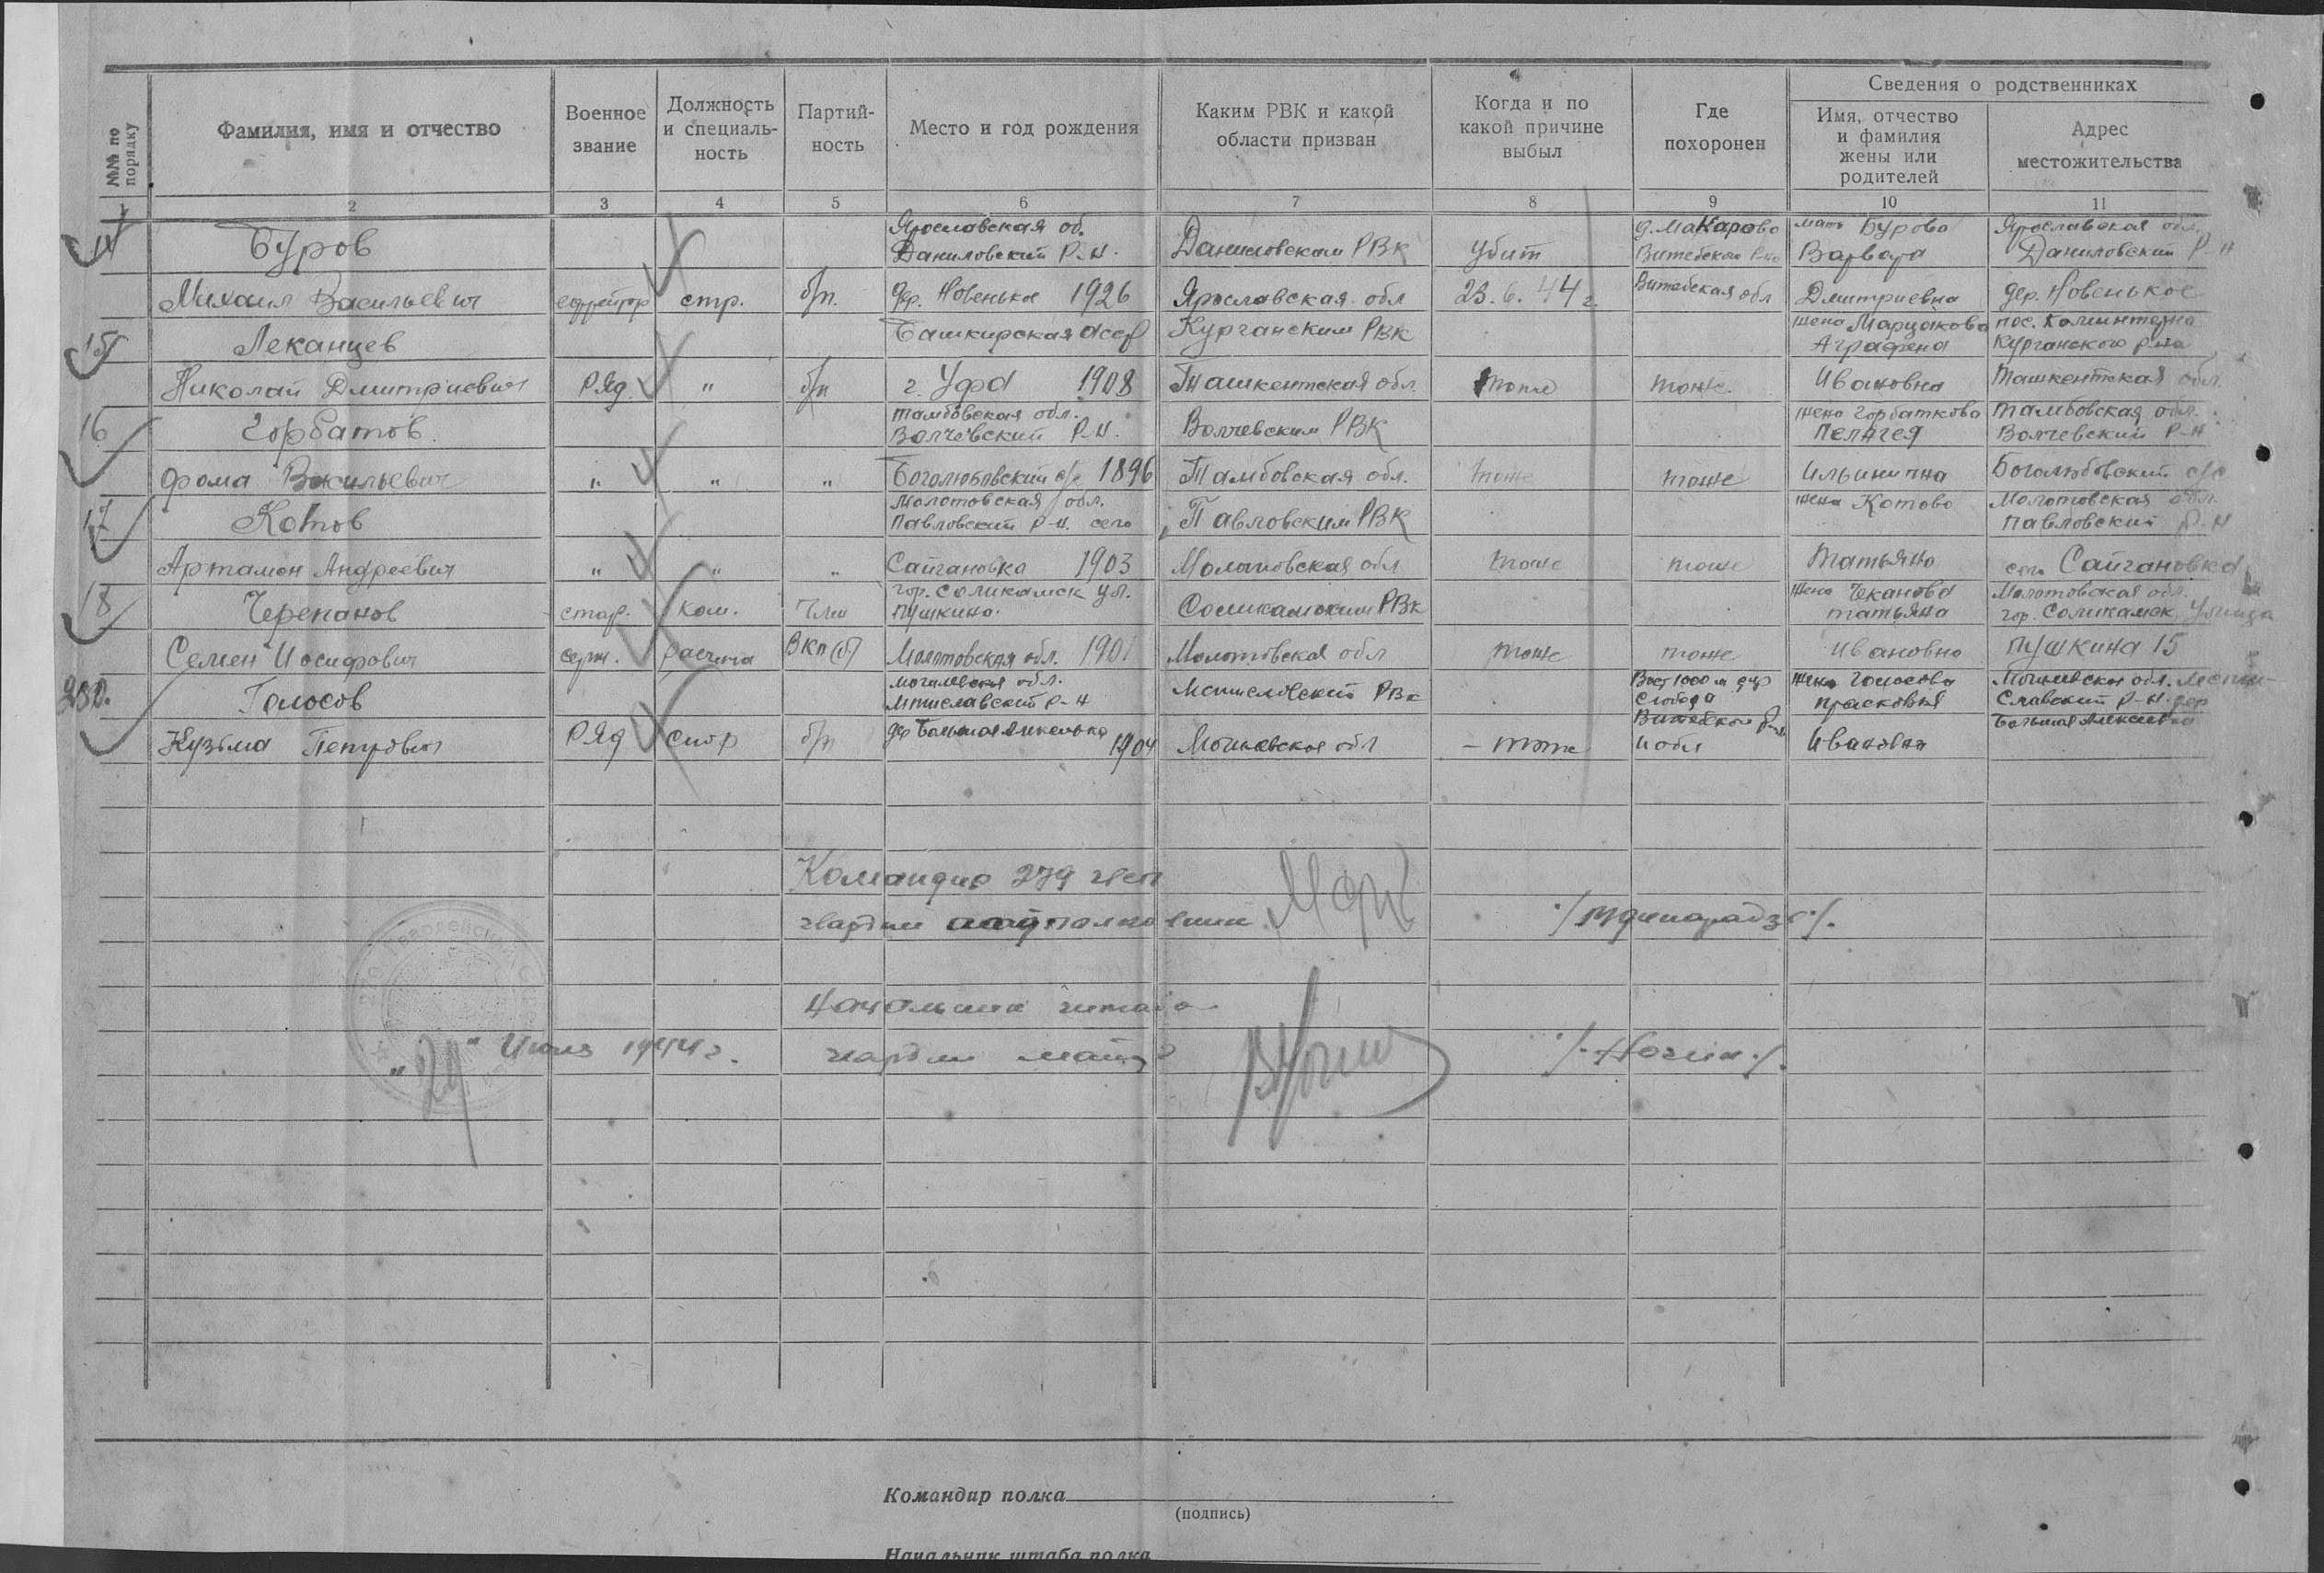 №№ по порядку
Фамилия, имя и отчество
Военное звание
Должность и специаль-ность
Партий-ность
Место и год рождения
Каким РВК и какой области призван
Когда и по какой причине выбыл
Где похоронен
Сведения о родственниках
Имя, отчество и фамилия жены или родителей
Адрес местожительства
1 2 3 4 5 6 7 8 9 10 11
14 Буров Ярославская об. Даниловский р-н. Даниловским РВК Убит д. Макарово Витебского р-на мать Бурова Варвара Ярославская обл. Даниловский р-н
Михаил Васильевич ефрейтор стр. б/п. дер. Новенькое 1926 Ярославская обл 23.6.44 г. Витебская обл Дмитриевна дер. Новенькое
15 Леканцев Башкирская АССР Курганским РВК жена Аграфена пос. Коминтерна Курганского р-на
Николай Дмитриевич Ряд. " б/п г. Уфа 1908 Ташкентская обл. тоже тоже. Ивановна Ташкентская обл.
16 Горбатов Тамбовская обл. Волчевский р-н. Волчевским РВК жена Горбаткова Пелагея Тамбовская обл. Волчевский р-н
Фома Васильевич " " " Боголюбовский с/с 1896 Тамбовская обл. тоже тоже Ильинична Боголюбовский с/с
17 Котов Молотовская обл. Павловский р-н. село Павловским РВК жена Котова Молотовская обл. Павловский р-н
Артамон Андреевич " " " Сайгановка 1903 Молотовская обл тоже тоже Татьяна село Сайгановка
18 Черепанов стар. ком. Член гор. Соликамск ул. Пушкина. Соликамским РВК жена Чеканова Татьяна Молотовская обл. гор. Соликамск, улица
Семен Иосифович серж. расчета ВКП(б) Молотовская обл. 1901 Молотовская обл тоже тоже Ивановна Пушкина 15
Голосов Могилевская обл. Мтиславский р-н Мстиславский РВК Вост 1000 м дер Слобода жена Голосова Прасковья Могилевская обл. Мсти-славский р-н. дер
Кузьма Петрович Ряд стр б/п дер Большая 1904 Могилевская обл – тоже Витебского р-на и обл Ивановна Большая
Командир 279 гвсп
гвардии подполковник
Начальник штаба
гвардии майор /. Ногин ./
"29" Июня 1944 г.
Командир полка
(подпись)
Начальник штаба полка